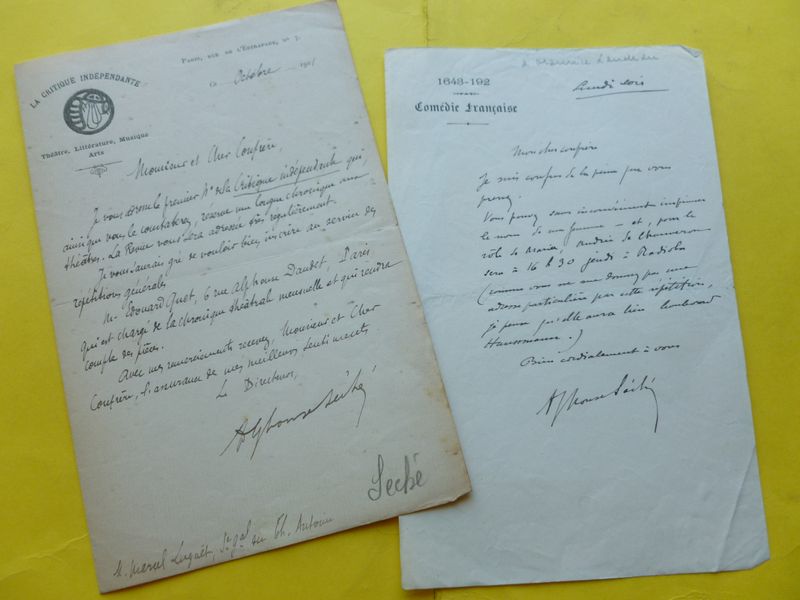 PARIS, RUE DE L'ESTRAPADE, N° 7.
LA CRITIQUE INDÉPENDANTE
Octobre 191
Théâtre, Littérature, Musique
Arts
Monsieur et Cher Confrère,
Je vous adresse le premier N° de la Critique indépendante qui,
ainsi que vous le constaterez, réserve une longue chronique aux
théâtres. La Revue vous sera adressée très régulièrement.
Je vous saurais gré de vouloir bien inscrire au service des
répétitions générales
Mr Edouard Guet, 6 rue Alphonse Daudet, Paris
qui est chargé de la chronique théâtrale mensuelle et qui rendra
compte des pièces.
Avec mes remerciements recevez, Monsieur et Cher
Confrère, l'assurance de mes meilleurs sentiments
Le Directeur,
Alphonse Séché
Seché
M. Marcel Luguet, Sre gal du Th. Antoine
1643-192
Comédie Française
Lundi soir
Mon cher confrère
Je suis confus de la peine que vous
prenez.
Vous pouvez sans inconvénient imprimer
le nom de ma femme — et, pour le
rôle de Maria, Andrée de Chauveron
sera à 16 h 30 jeudi à Radiola
(comme vous ne me donnez pas une
adresse particulière pour cette répétition,
je pense qu'elle aura lieu boulevard
Haussmann.)
Bien cordialement à vous
Alphonse Séché